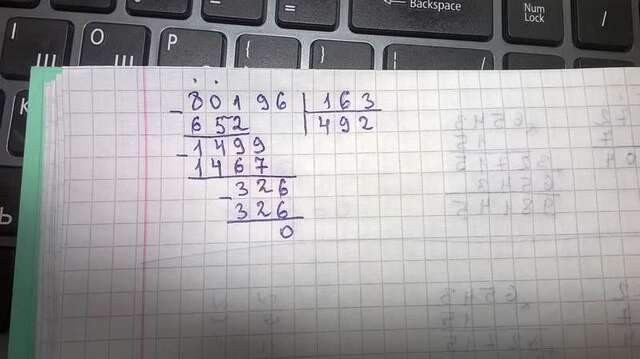 Backspace
Num
Lock
/
I
Ш
O
Щ
P
{
}
80196 | 163
- 652 | 492
- 1499
1467
- 326
326
0